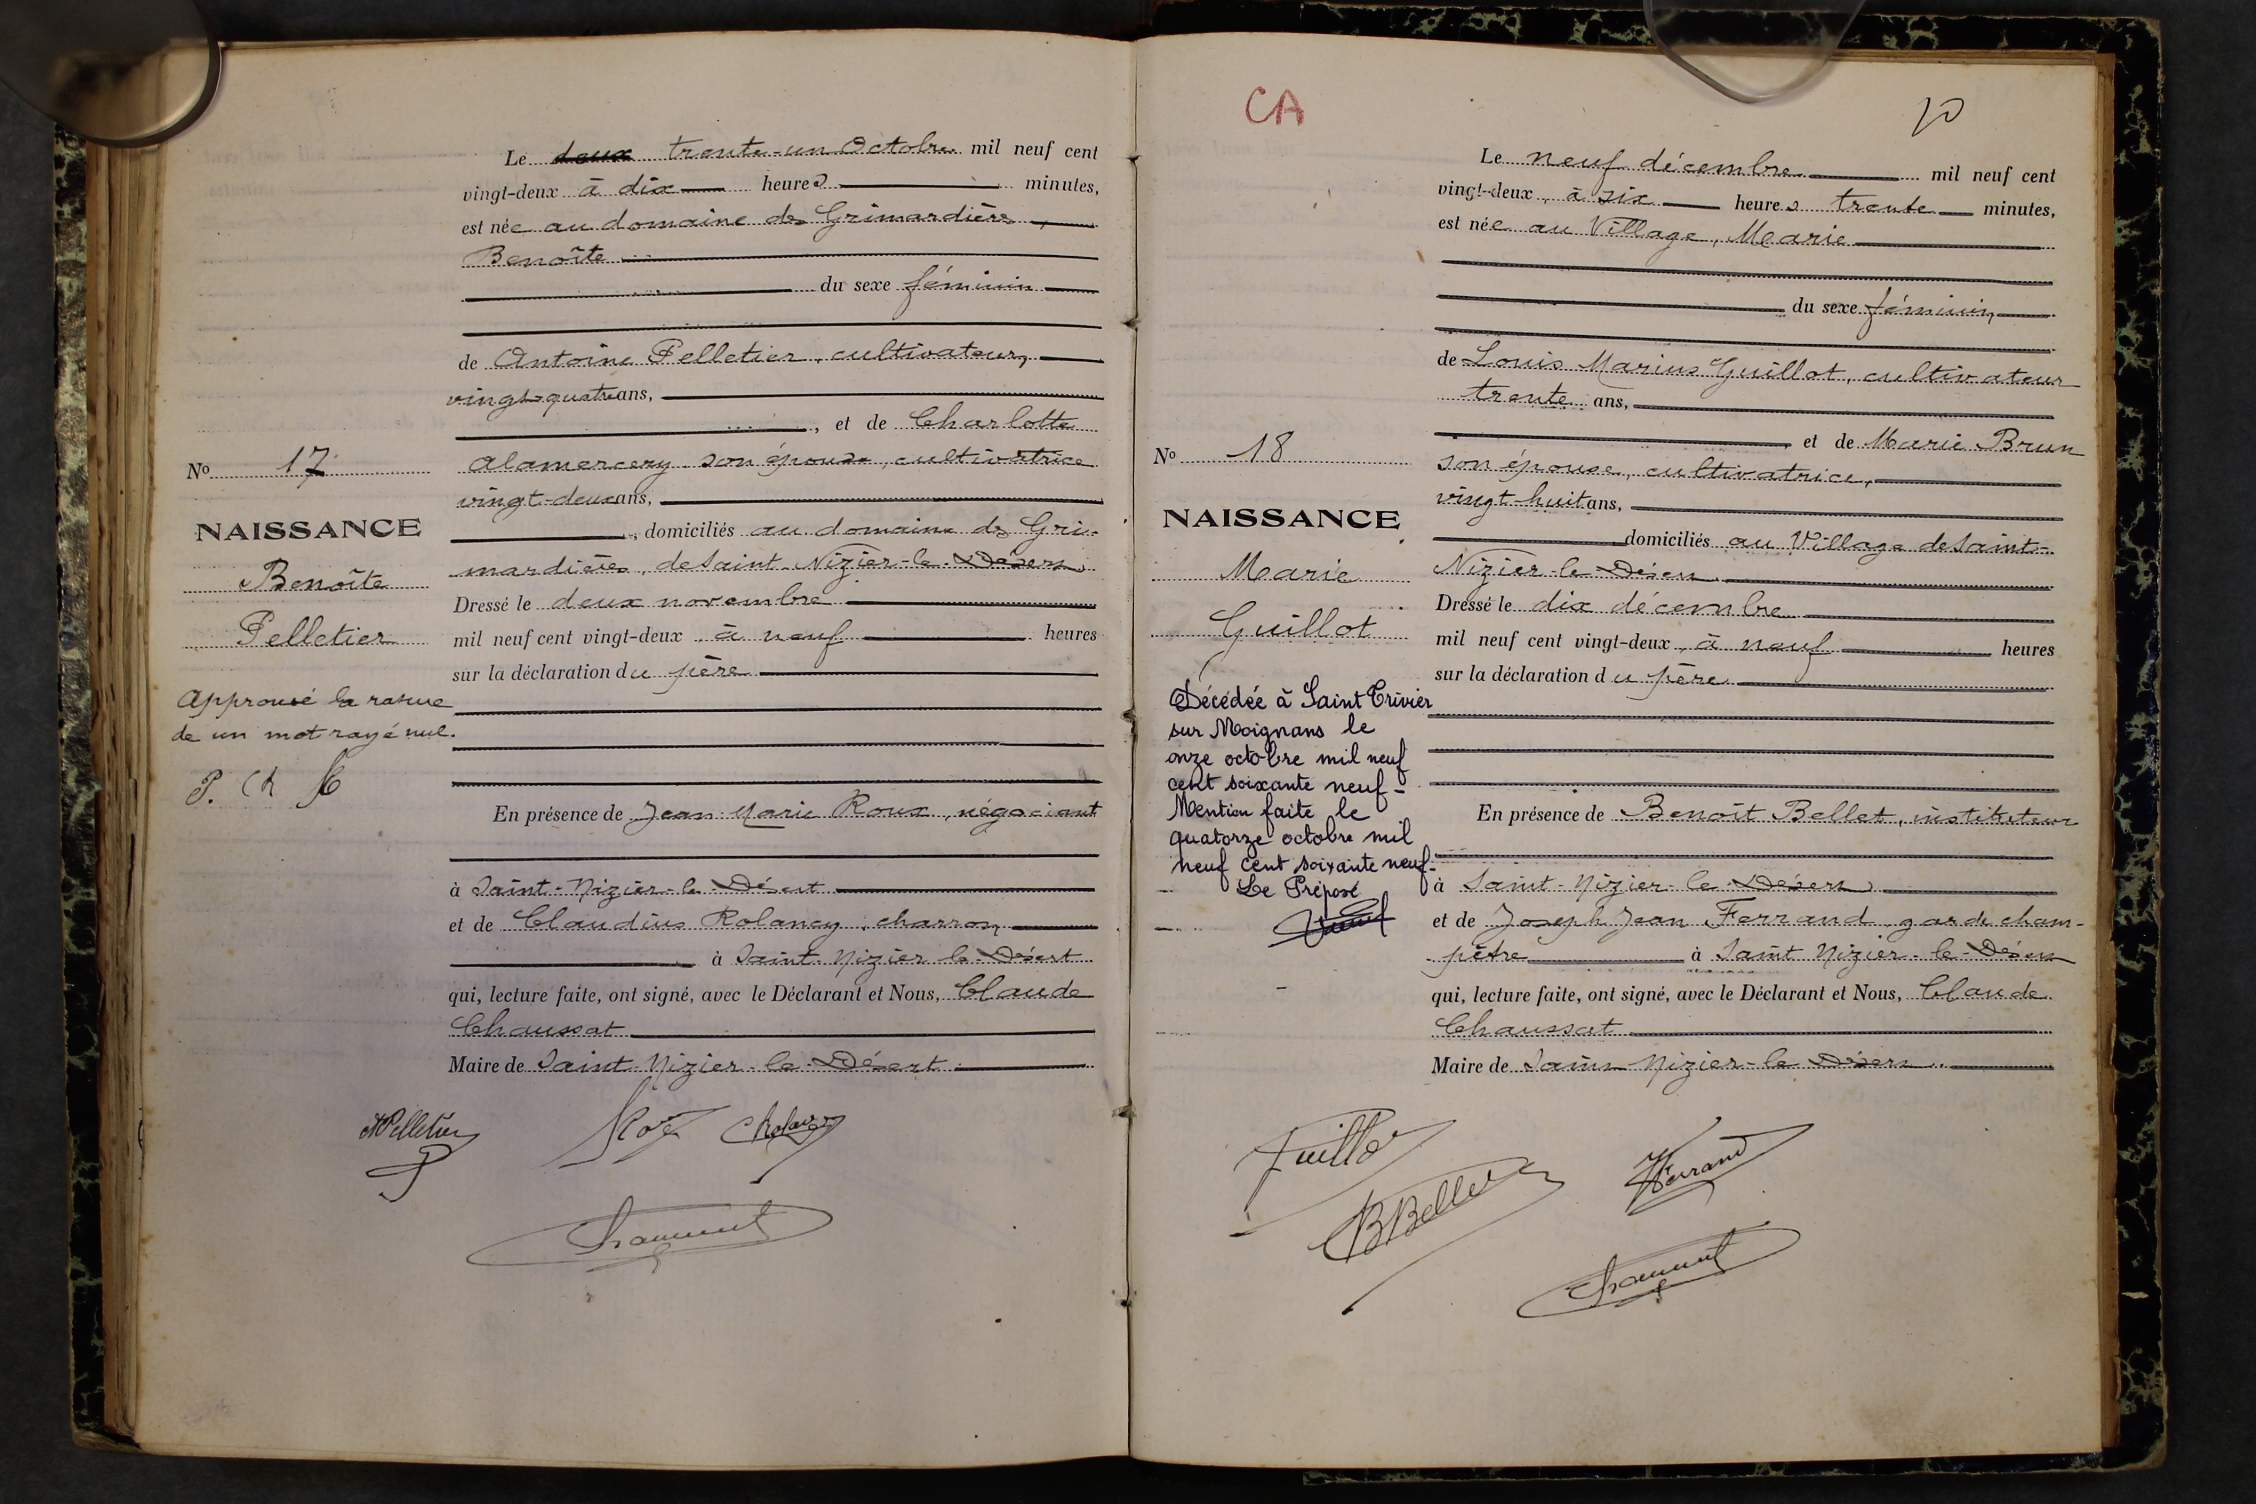 Le deux trente-un Octobre mil neuf cent
vingt-deux à dix heures minutes,
est née au domaine des Grimardières,
Benoîte
du sexe féminin
de Antoine Pelletier, cultivateur,
vingt-quatre ans,
, et de Charlotte
Alamercery son épouse, cultivatrice
vingt-deux ans,
, domiciliés au domaine des Gri-
mardières, de Saint Nizier-le-Désert
Dressé le deux novembre
mil neuf cent vingt-deux à neuf heures
sur la déclaration du père
En présence de Jean Marie Roux, négociant
à Saint-Nizier-le-Désert
et de Claudius Rolancy, charron,
à Saint Nizier le-Désert
qui, lecture faite, ont signé, avec le Déclarant et Nous, Claude
Chaussat
Maire de Saint-Nizier-le-Désert
No 17
NAISSANCE
Benoîte
Pelletier
Approuvé la rature
de un mot rayé nul.
APelletier
CA
10
Le neuf décembre mil neuf cent
vingt-deux, à six heures trente minutes,
est née au Village, Marie
du sexe féminin,
de Louis Marius Guillot, cultivateur
trente ans,
et de Marie Brun
son épouse, cultivatrice,
vingt-huit ans,
domiciliés au Village de Saint-
Nizier-le-Désert
Dressé le dix décembre
mil neuf cent vingt-deux, à neuf heures
sur la déclaration du père
En présence de Benoît Bellet, instituteur
à Saint-Nizier-le-Désert
et de Joseph Jean Ferrand, garde cham-
pêtre à Saint Nizier-le-Désert
qui, lecture faite, ont signé, avec le Déclarant et Nous, Claude
Chaussat
Maire de Saint Nizier-le-Désert
No 18
NAISSANCE
Marie
Guillot
Décédée à Saint Trivier
sur Moignans le
onze octobre mil neuf
cent soixante neuf-
Mention faite le
quatorze octobre mil
neuf cent soixante neuf-
Le Préposé
Guillot
BBellet
Ferrand